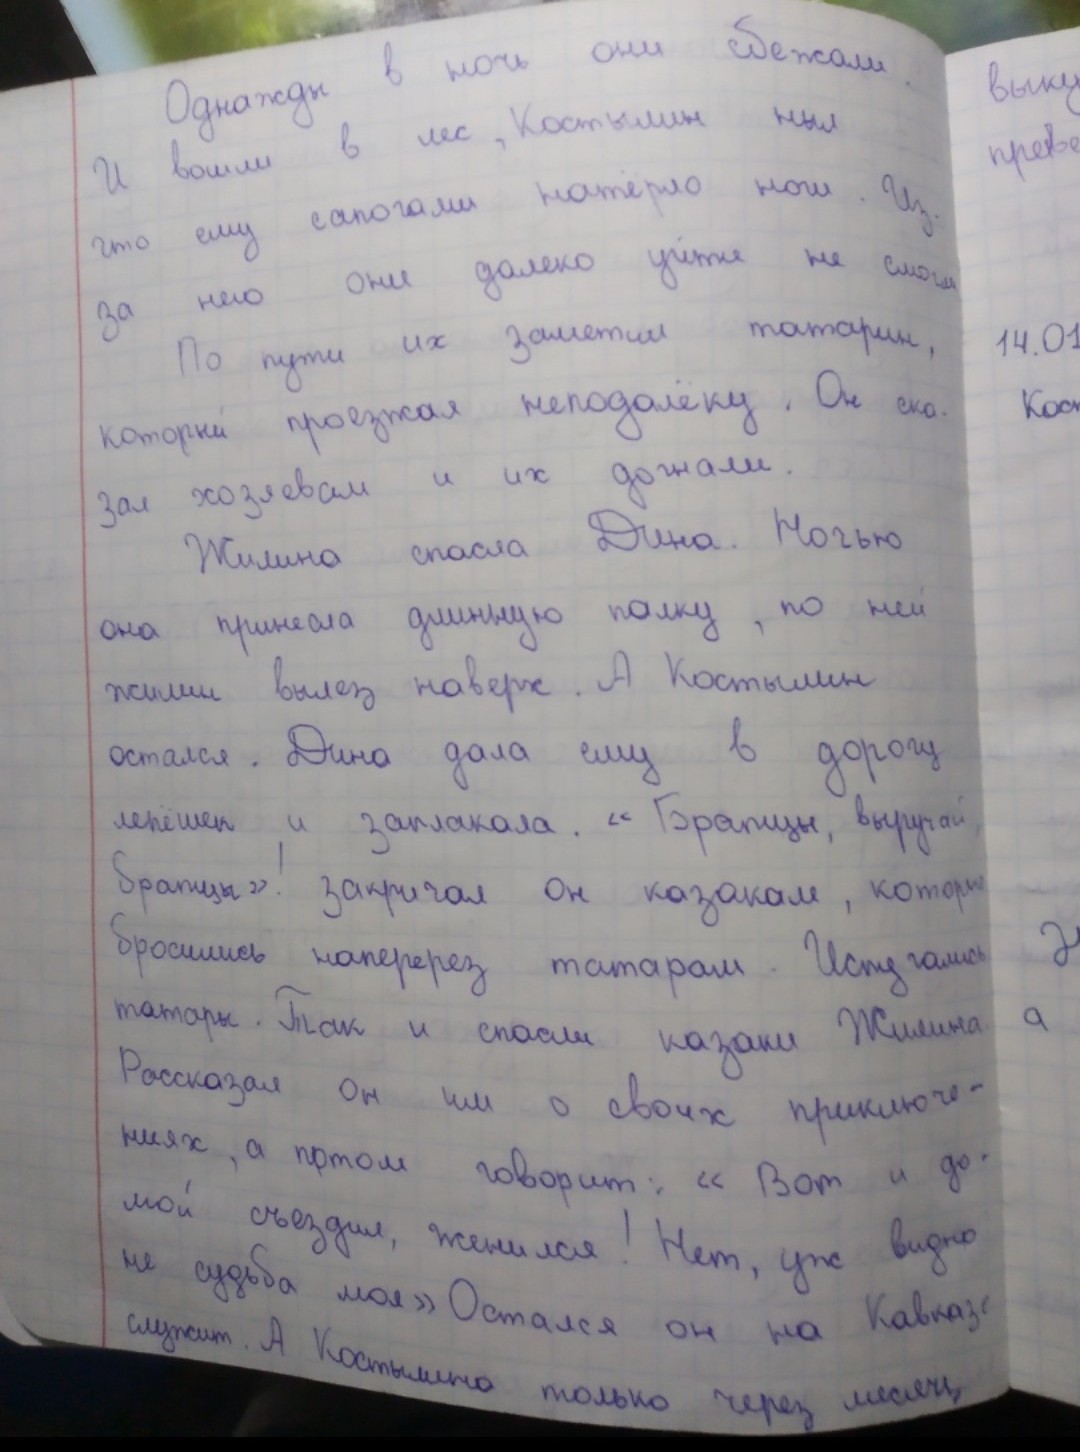 Однажды в ночь они сбежали.
И вошли в лес, Костылин ныл
что ему сапогами натёрло ноги. Из-
за него они далеко уйти не смогли
По пути их заметил татарин,
который проезжал неподалёку. Он ска-
зал хозяевам и их догнали.
Жилина спасла Дина. Ночью
она принесла длинную палку, по ней
жилин вылез наверх. А Костылин
остался. Дина дала ему в дорогу
лепёшек и заплакала. "Братцы, выручай,
братцы"! закричал он казакам, которые
бросились наперерез татарам. Испугались
татары. Так и спасли казаки Жилина
Рассказал он им о своих приключе-
ниях, а потом говорит: "Вот и до-
мой съездил, женился! Нет, уж видно
не судьба моя" Остался он на Кавказе
служит. А Костылина только через месяц
выку
приве
14.01
Кост
а